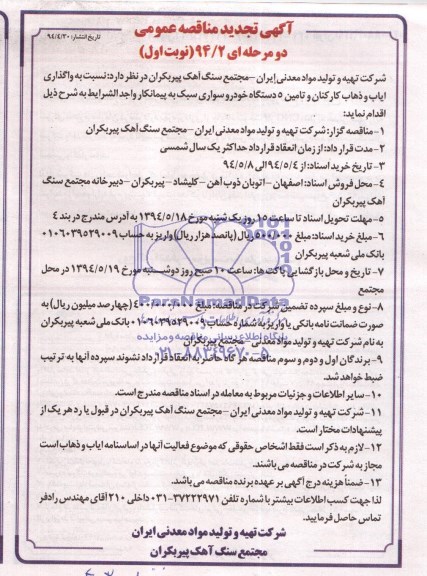 آگهی تجدید مناقصه عمومی
تاریخ انتشار: ۹۴/۴/۳۰
دو مرحله ای ۹۴/۲ (نوبت اول)
شرکت تهیه و تولید مواد معدنی ایران -مجتمع سنگ آهک پیربکران در نظر دارد: نسبت به واگذاری
ایاب و ذهاب کارکنان و تامین ۵ دستگاه خودرو سواری سبک به پیمانکار واجد الشرایط به شرح ذیل
اقدام نماید:
۱-مناقصه گزار: شرکت تهیه و تولید مواد معدنی ایران -مجتمع سنگ آهک پیربکران
۲-مدت قرارداد: از زمان انعقاد قرارداد حداکثر یک سال شمسی
۳-تاریخ خرید اسناد: از ۹۴/۵/۴ الی ۹۴/۵/۸
۴-محل فروش اسناد: اصفهان -اتوبان ذوب آهن -کلیشاد -پیربکران -دبیرخانه مجتمع سنگ
آهک پیربکران
۵-مهلت تحویل اسناد تا ساعت ۱۵ روز یک شنبه مورخ ۱۳۹۴/۵/۱۸ به آدرس مندرج در بند ۴
۶-مبلغ خرید اسناد: مبلغ ۵۰۰/۰۰۰ ریال (پانصد هزار ریال) واریز به حساب ۰۱۰۶۰۳۹۵۲۹۰۰۹
بانک ملی شعبه پیربکران
۷-تاریخ و محل بازگشایی پاکت ها: ساعت ۱۰ صبح روز دوشنبه مورخ ۱۳۹۴/۵/۱۹ در محل
مجتمع
۸-نوع و مبلغ سپرده تضمین شرکت در مناقصه: مبلغ ۴۰۰/۰۰۰/۰۰۰ (چهارصد میلیون ریال) به
صورت ضمانت نامه بانکی یا واریز به شماره حساب ۰۱۰۶۰۳۹۵۲۹۰۰۹ بانک ملی شعبه پیربکران
به نام شرکت تهیه و تولید مواد معدنی -مجتمع پیربکران
۹-برندگان اول و دوم و سوم مناقصه هر گاه حاضر به انعقاد قرارداد نشوند سپرده آنها به ترتیب
ضبط خواهد شد.
۱۰-سایر اطلاعات و جزئیات مربوط به معامله در اسناد مناقصه مندرج است.
۱۱-شرکت تهیه و تولید مواد معدنی ایران -مجتمع سنگ آهک پیربکران در قبول یا رد هر یک از
پیشنهادات مختار است.
۱۲-لازم به ذکر است فقط اشخاص حقوقی که موضوع فعالیت آنها در اساسنامه ایاب و ذهاب است
مجاز به شرکت در مناقصه می باشند.
۱۳-ضمناً هزینه درج آگهی بر عهده برنده مناقصه می باشد.
لذا جهت کسب اطلاعات بیشتر با شماره تلفن ۳۷۲۲۲۹۷۱-۰۳۱ داخلی ۲۱۰ آقای مهندس رادفر
تماس حاصل فرمایید.
شرکت تهیه و تولید مواد معدنی ایران
مجتمع سنگ آهک پیربکران
ParsNamadData
پایگاه اطلاع رسانی مناقصه و مزایده
۰۲۱-۸۸۳۴۹۶۷۰-۵